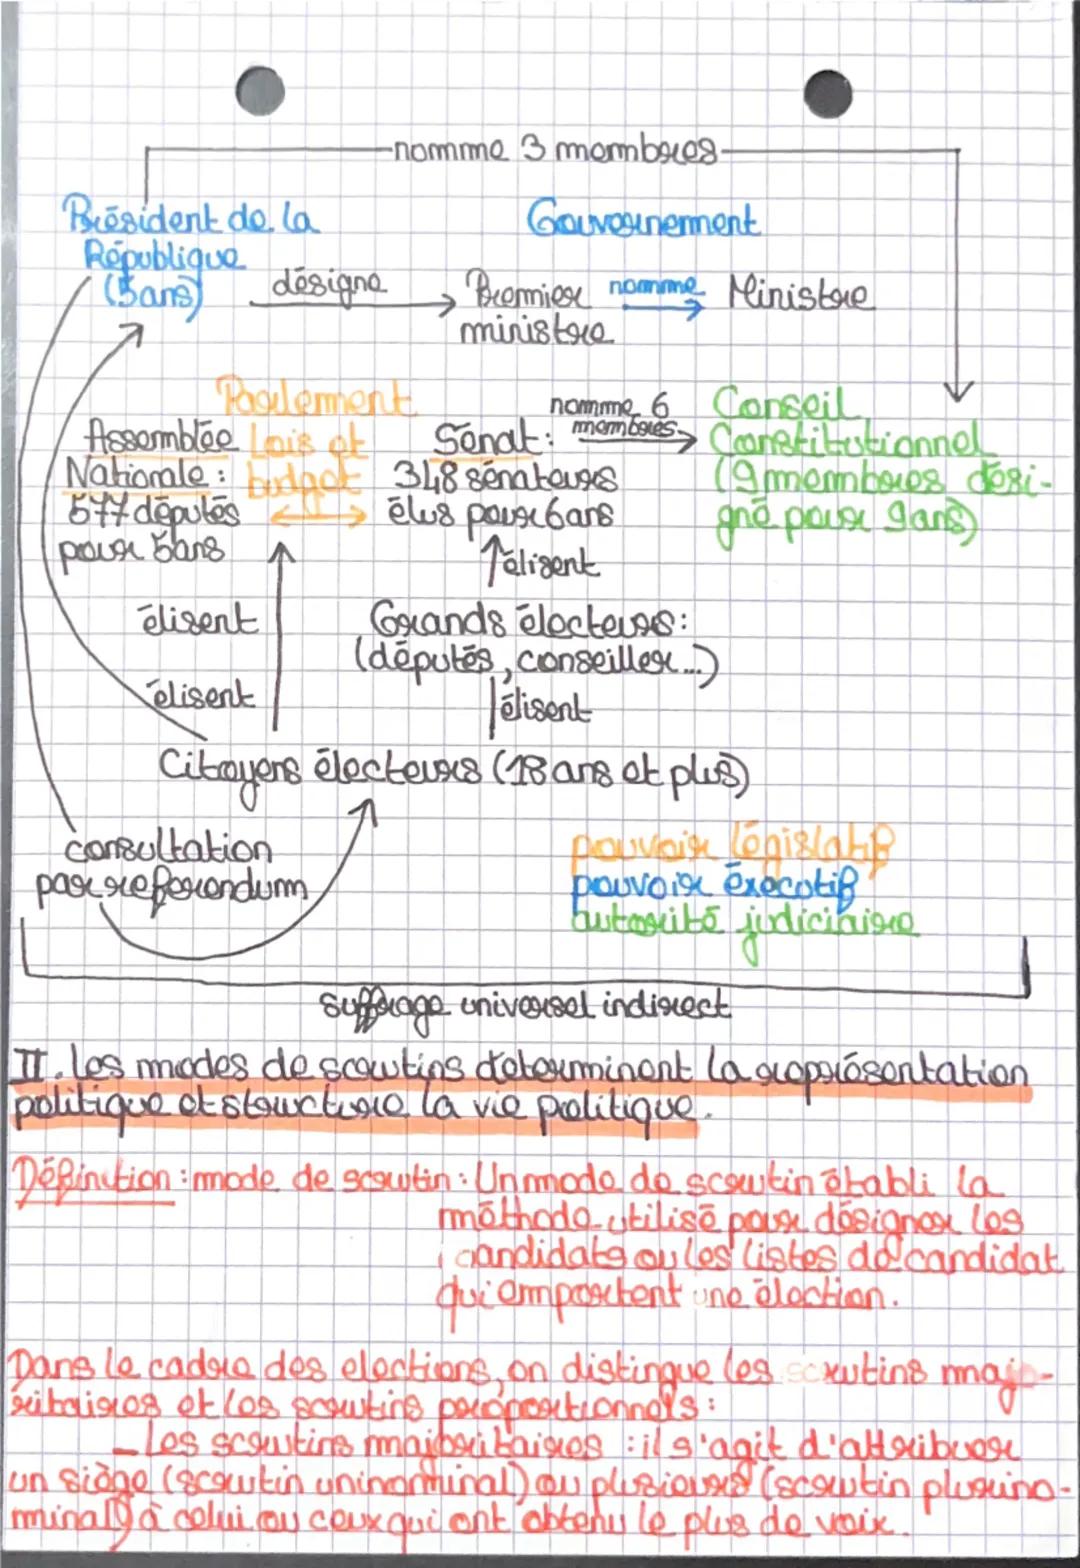 nomme 3 membres
Président de la
République
(5 ans)
Gouvernement
désigne
Premier
ministre
nomme
Ministre
Parlement
Lois et
budget
Assemblée
Nationale :
577 députés
pour 5ans
Sénat :
348 sénateurs
élus pour 6ans
nomme 6
membres
Conseil
Constitutionnel
(9 membres dési-
gné pour 9ans)
élisent
élisent
Grands électeurs:
(députés, conseiller...)
élisent
élisent
Citoyens électeurs (18 ans et plus)
consultation
par referendum
pouvoir législatif
pouvoir éxecutif
autorité judiciaire
suffrage universel indirect
II. Les modes de scrutins determinent la représentation
politique et structure la vie politique.
Définition : mode de scrutin : Un mode de scrutin établi la
méthode utilisé pour désigner les
candidats ou les listes de candidat
qui emportent une élection.
Dans le cadre des elections, on distingue les scrutins maj-
oritaires et les scrutins proportionnels :
- Les scrutins majoritaires : il s'agit d'attribuer
un siège (scrutin uninominal) ou plusieurs (scrutin plurino-
minal) à celui ou ceux qui ont obtenu le plus de voix.